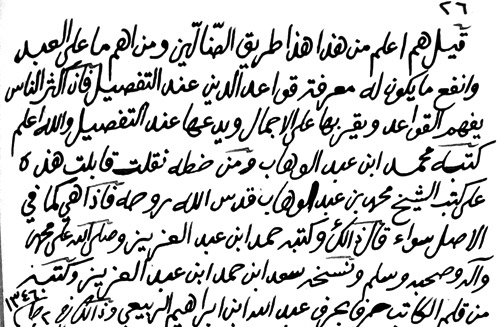 ٢٦
قيل هم اعلم من هذا هذا طريق الضالين ومن اهم ما على العبد
وانفع ما يكون له معرفة قواعد الدين عند التفصيل فان اكثر الناس
يفهم القواعد ويقر بها على الاجمال ويدعها عند التفصيل والله اعلم
كتبه محمد ابن عبد الوهاب ومن خطه نقلت قابلت هذه
على كتب الشيخ محمد بن عبد الوهاب قدس الله روحه فاذا هي كما في
الاصل سواء قال ذالك وكتبه حمد ابن عبد العزيز وصلى الله على محمد
وآله وصحبه وسلم ونسخه سعد ابن حمد ابن عبد العزيز وكتبته
من قلم الكاتب حرفا بحرف عبد الله ابن ابراهيم الربيعي وذالك في ٢ جا ١٣٤٦